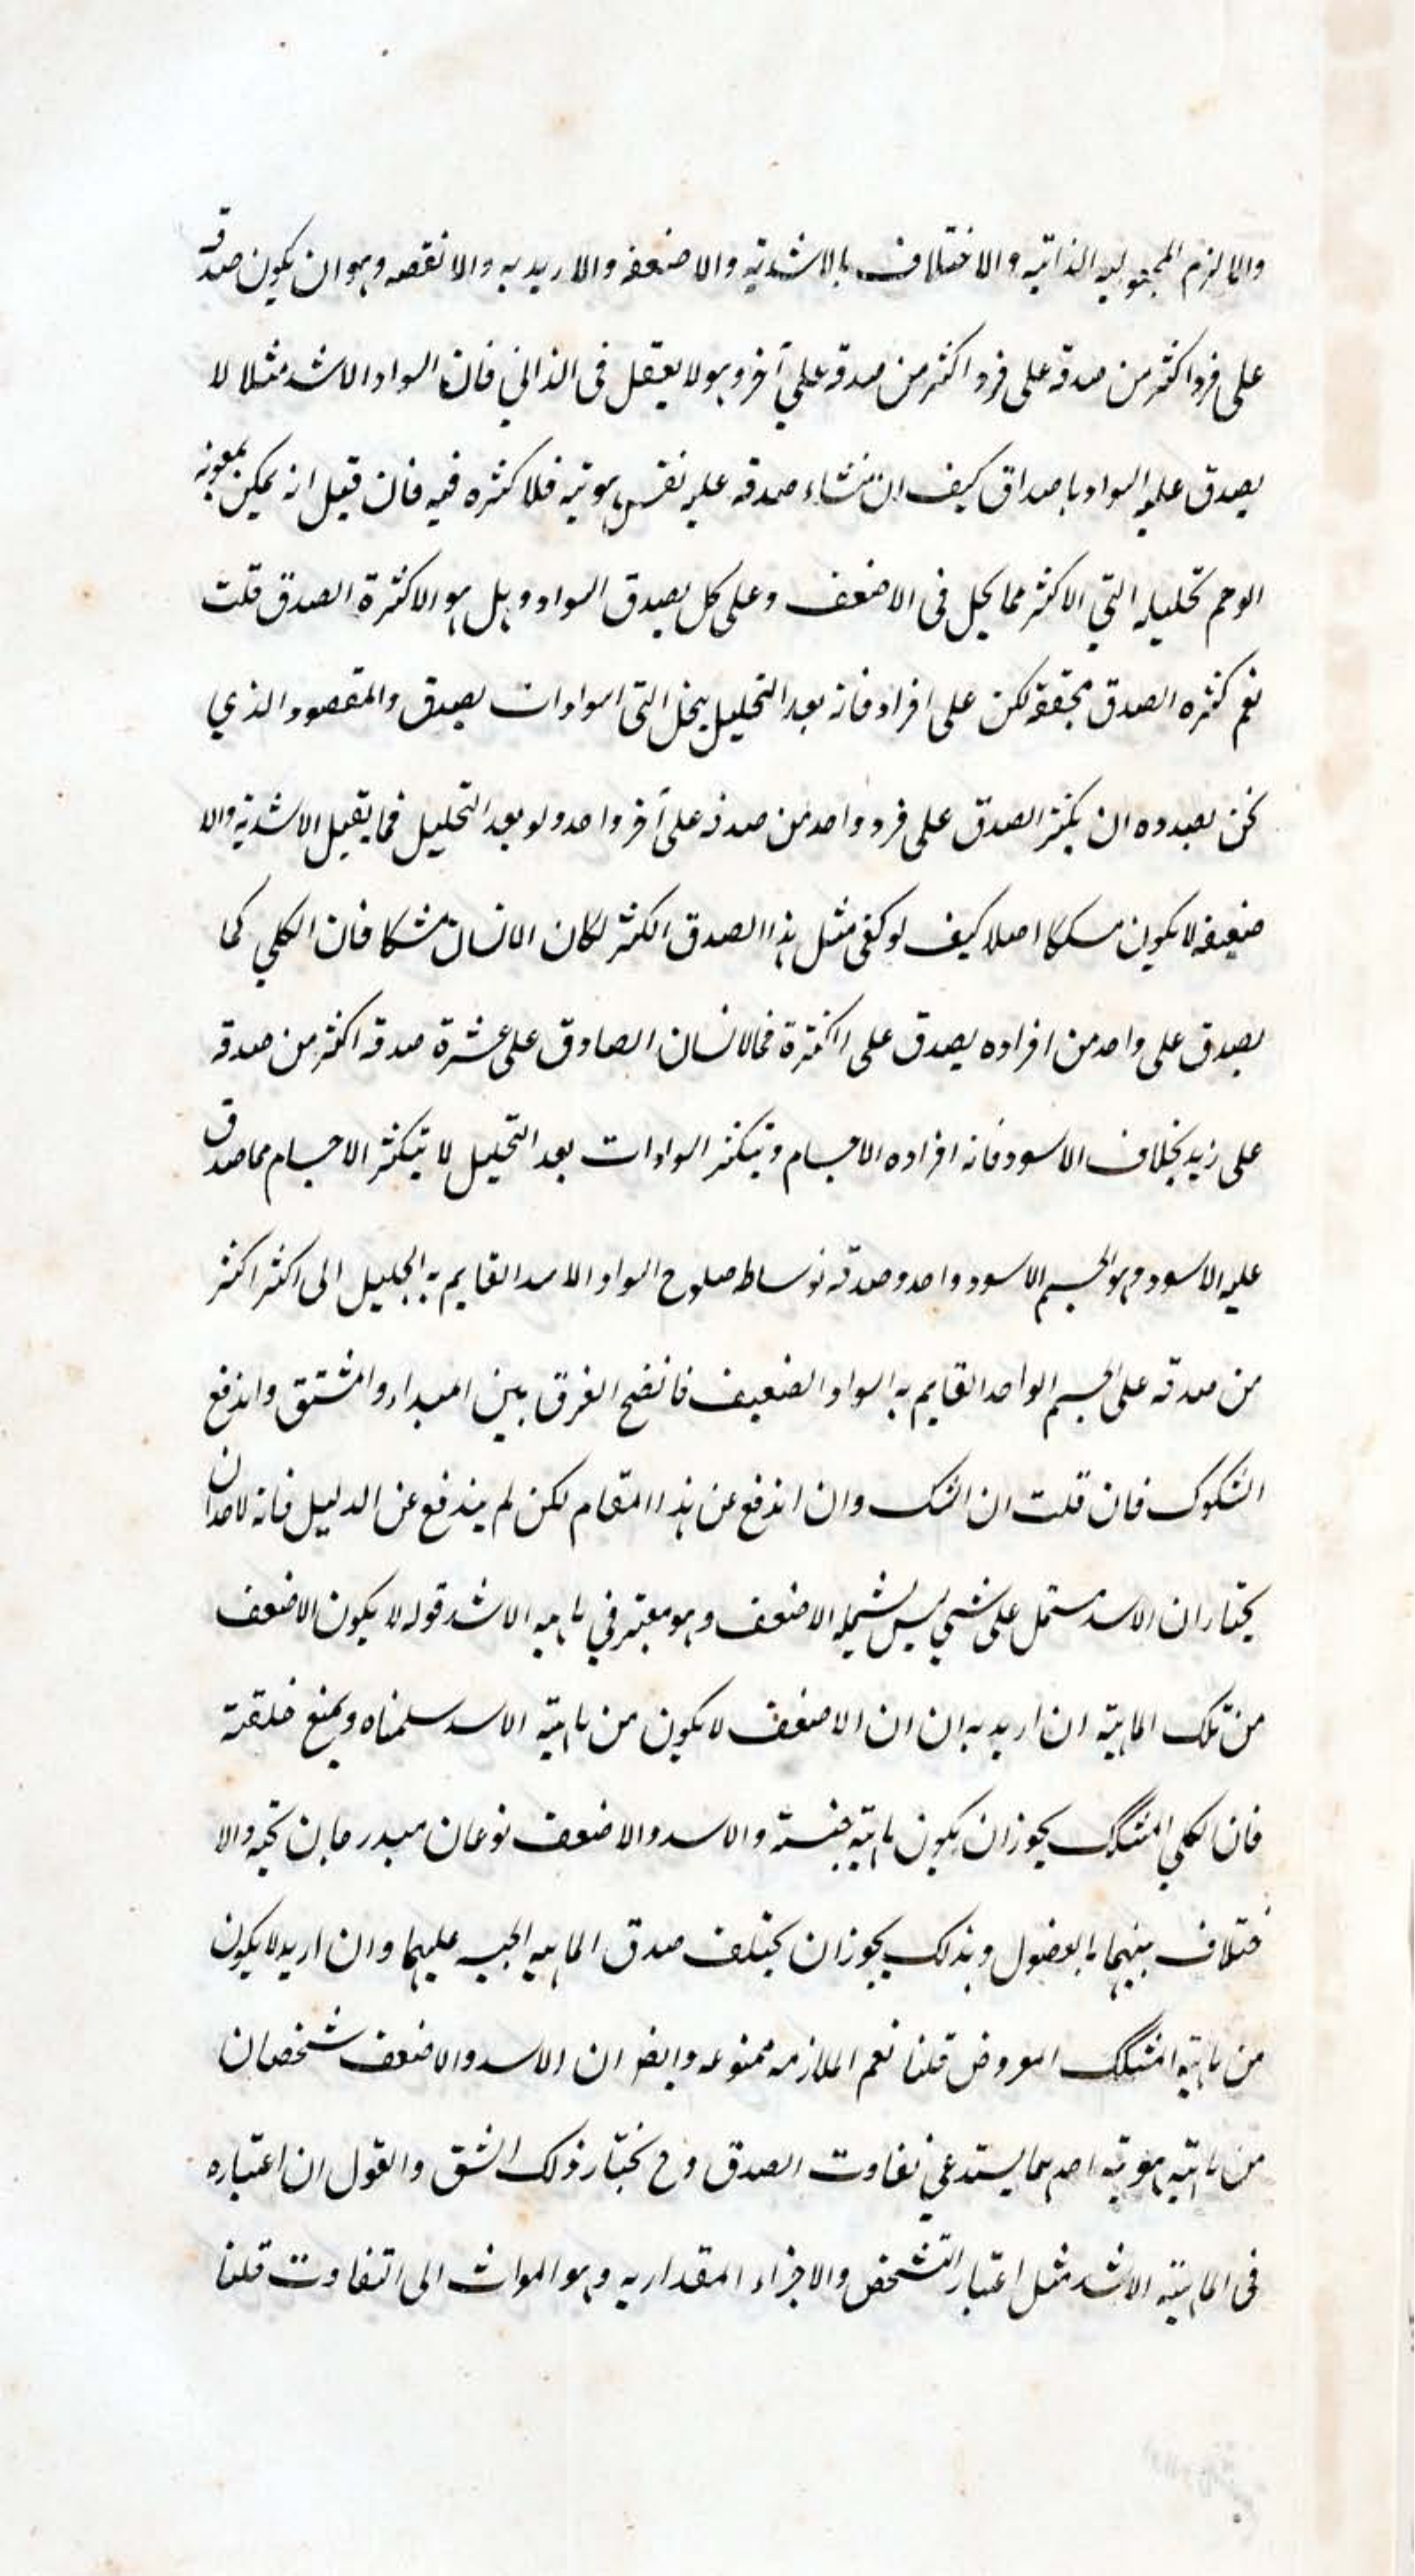 والا لزم المجعوليه الذاتيه والاختلاف بالاشديه والاضعفه والازيديه والانقصه وهو ان يكون صدقه
على فرد اكثر من صدقه على فرد اكثر من صدقه على آخر وهو لا يعقل فى الذاتي فان السواد الاشد مثلا لا
يصدق عليه السواد باصداق كيف ان منشاء صدقه عليه نفس هويته فلا كثره فيه فان قيل انه يمكن بمعونه
الوهم تحليله التي الاكثر مما يحل فى الاضعف وعلى كل يصدق السواد وهل هو الا كثرة الصدق قلت
نعم كثره الصدق محققه لكن على افراد فانه بعد التحليل ينحل التى اسوادات يصدق والمقصود الذي
نحن بصدده ان يكثر الصدق على فرد واحد من صدقه على آخر واحد ولو بعد التحليل فما يقبل الاشديه والا
ضعيفه لا يكون مسككا اصلا كيف لو كفى مثل هذا الصدق الكثر لكان الانسان مشككا فان الكلي كما
يصدق على واحد من افراده يصدق على اكثرة فالانسان الصادق على عشرة صدقه اكثر من صدقه
على زيد بخلاف الاسود فانه افراده الاجسام وتبكثر السوادات بعد التحليل لا تتكثر الاجسام مما صدق
عليه الاسود وهو الجسم الاسود واحد وصدقه بوساط صلوح السواد الاسد القايم به الجليل الى اكثر اكثر
من صدقه على الجسم الواحد القايم به السواد الضعيف فاتضح الفرق بين المبداء والمشتق واندفع
الشكوك فان قلت ان الشك وان اندفع عن هذا المقام لكن لم يندفع عن الدليل فانه لاحد ان
يختار ان الاسد مستمل على شيي ليس يشمله الاضعف وهو معتبر في ماهيه الاشد قوله لا يكون الاضعف
من تلك الماهيته ان اريد به ان ان الاضعف لا يكون من ماهيته الاسد سلمناه ويمنع خلقته
فان الكلي المشكك يجوز ان يكون ماهيته جنسته والاسد والاضعف نوعان مندرجان تحته والا
ختلاف بينهما بالفصول وبذلك يجوز ان يختلف صدق الماهيه الجنسيه عليهما وان اريد لا يكون
من ماهيته المشكك المعروض قلنا نعم الملازمه ممنوعه وايضا ان الاسد والاضعف شخصان
من ماهيته هويته احدهما يستدعي تفاوت الصدق وح نختار ذلك الشق والقول ان اعتباره
فى الماهيته الاشد مثل اعتبار التشخص والاجزاء المقداريه وهو الموات الى التفاوت قلنا